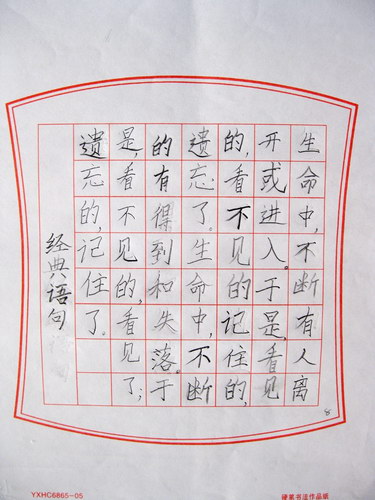 生命中,不断有人离
开或进入。于是,看见
的,看不见的记住的,
遗忘了。生命中,不断
的有得到和失落。于
是,看不见的,看见了;
遗忘的,记住了。
经典语句
8
YXHC6865-05
硬笔书法作品纸